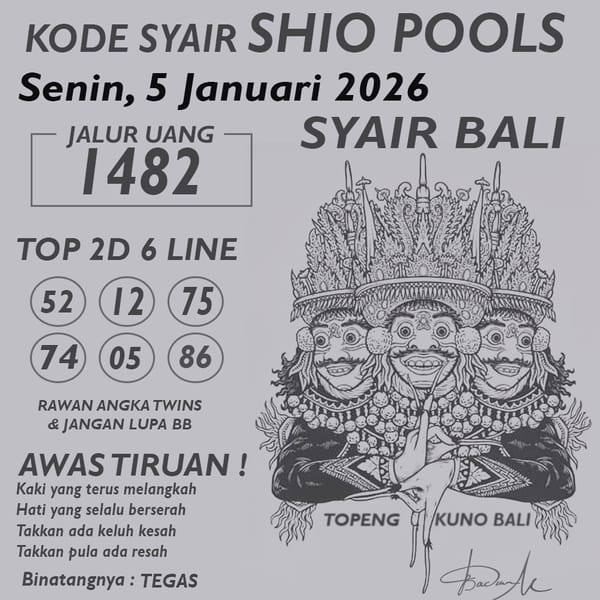 KODE SYAIR SHIO POOLS
Senin, 5 Januari 2026
JALUR UANG
1482
SYAIR BALI
TOP 2D 6 LINE
52 12 75
74 05 86
RAWAN ANGKA TWINS
& JANGAN LUPA BB
AWAS TIRUAN !
Kaki yang terus melangkah
Hati yang selalu berserah
Takkan ada keluh kesah
Takkan pula ada resah
Binatangnya : TEGAS
TOPENG KUNO BALI